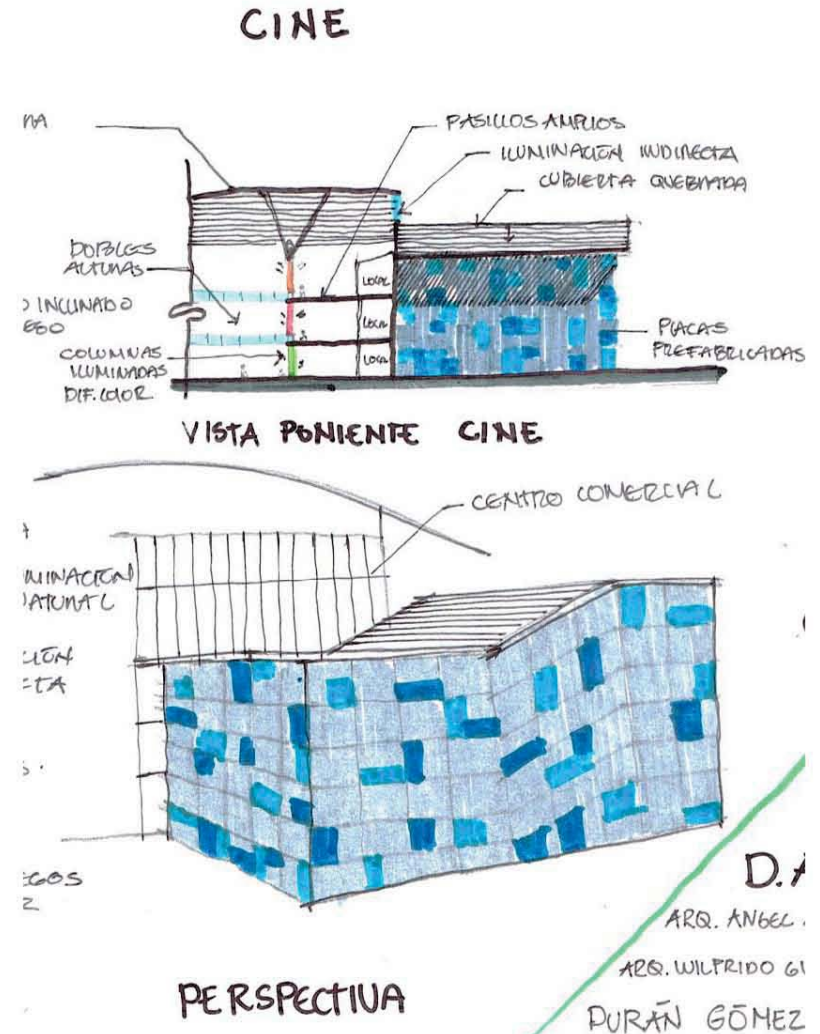 CINE
NA
PASILLOS AMPLIOS
ILUMINACIÓN INDIRECTA
CUBIERTA QUEBRADA
DOBLES
ALTURAS
O INCLINADO
ESO
COLUMNAS
ILUMINADAS
DIF. COLOR
LOCAL
LOCAL
LOCAL
PLACAS
PREFABRICADAS
VISTA PONIENTE CINE
CENTRO COMERCIAL
MINACIÓN
ATURAL
CIÓN
CTA
S.
EGOS
Z
D.A
ARQ. ANGEL
ARQ. WILFRIDO GU
DURÁN GÓMEZ
PERSPECTIVA